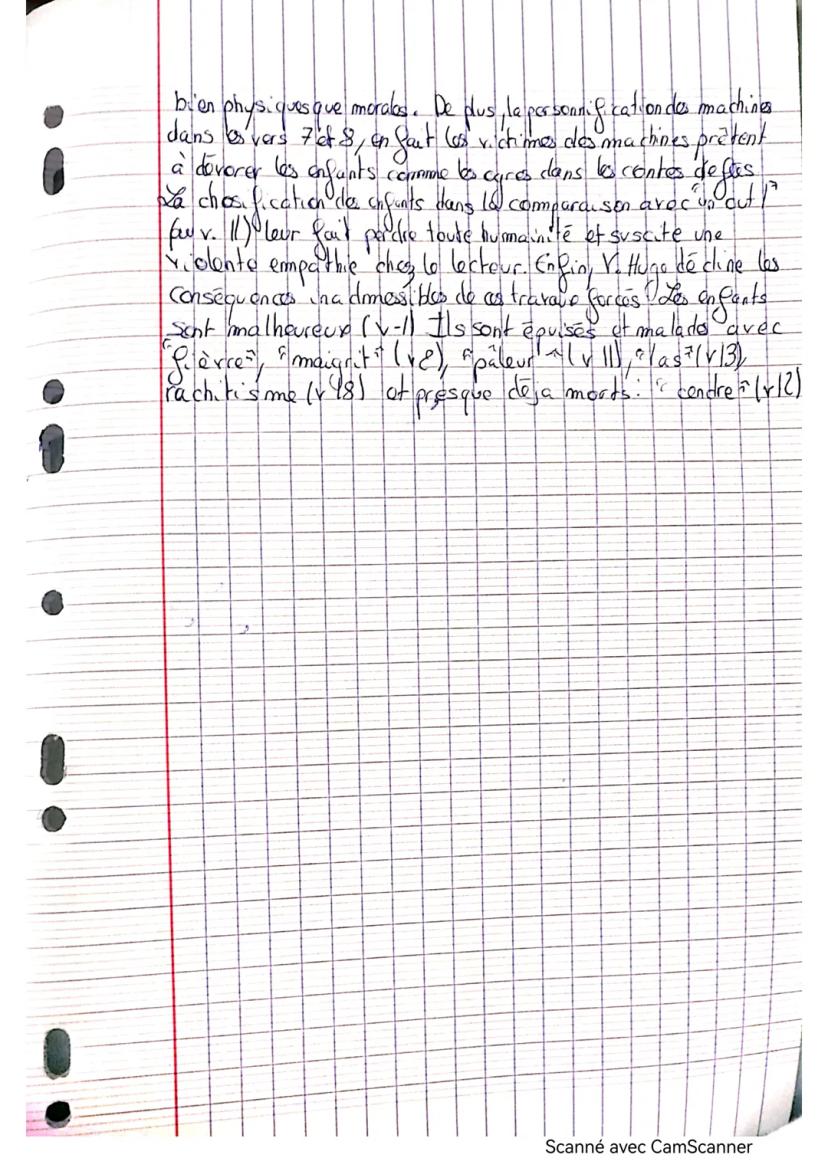 bien physiques que morales. De plus, la personnification des machines
dans les vers 7 et 8, en fait les victimes des machines prêtent
à dévorer les enfants comme les ogres dans les contes de fées
La chosification des enfants dans la comparaison avec "un outil"
(au v. 11) leur fait perdre toute humainité et suscite une
violente empathie chez le lecteur. Enfin, V. Hugo décline les
conséquences inadmessibles de ces travaux forcés. Les enfants
sont malheureux (v-1) Ils sont épuisés et malades avec
"fièvre", "maigrit" (v2), "pâleur" (v 11), "las" (v13),
rachitisme (v 18) et presque déja morts: "cendre" (v12)
Scanné avec CamScanner